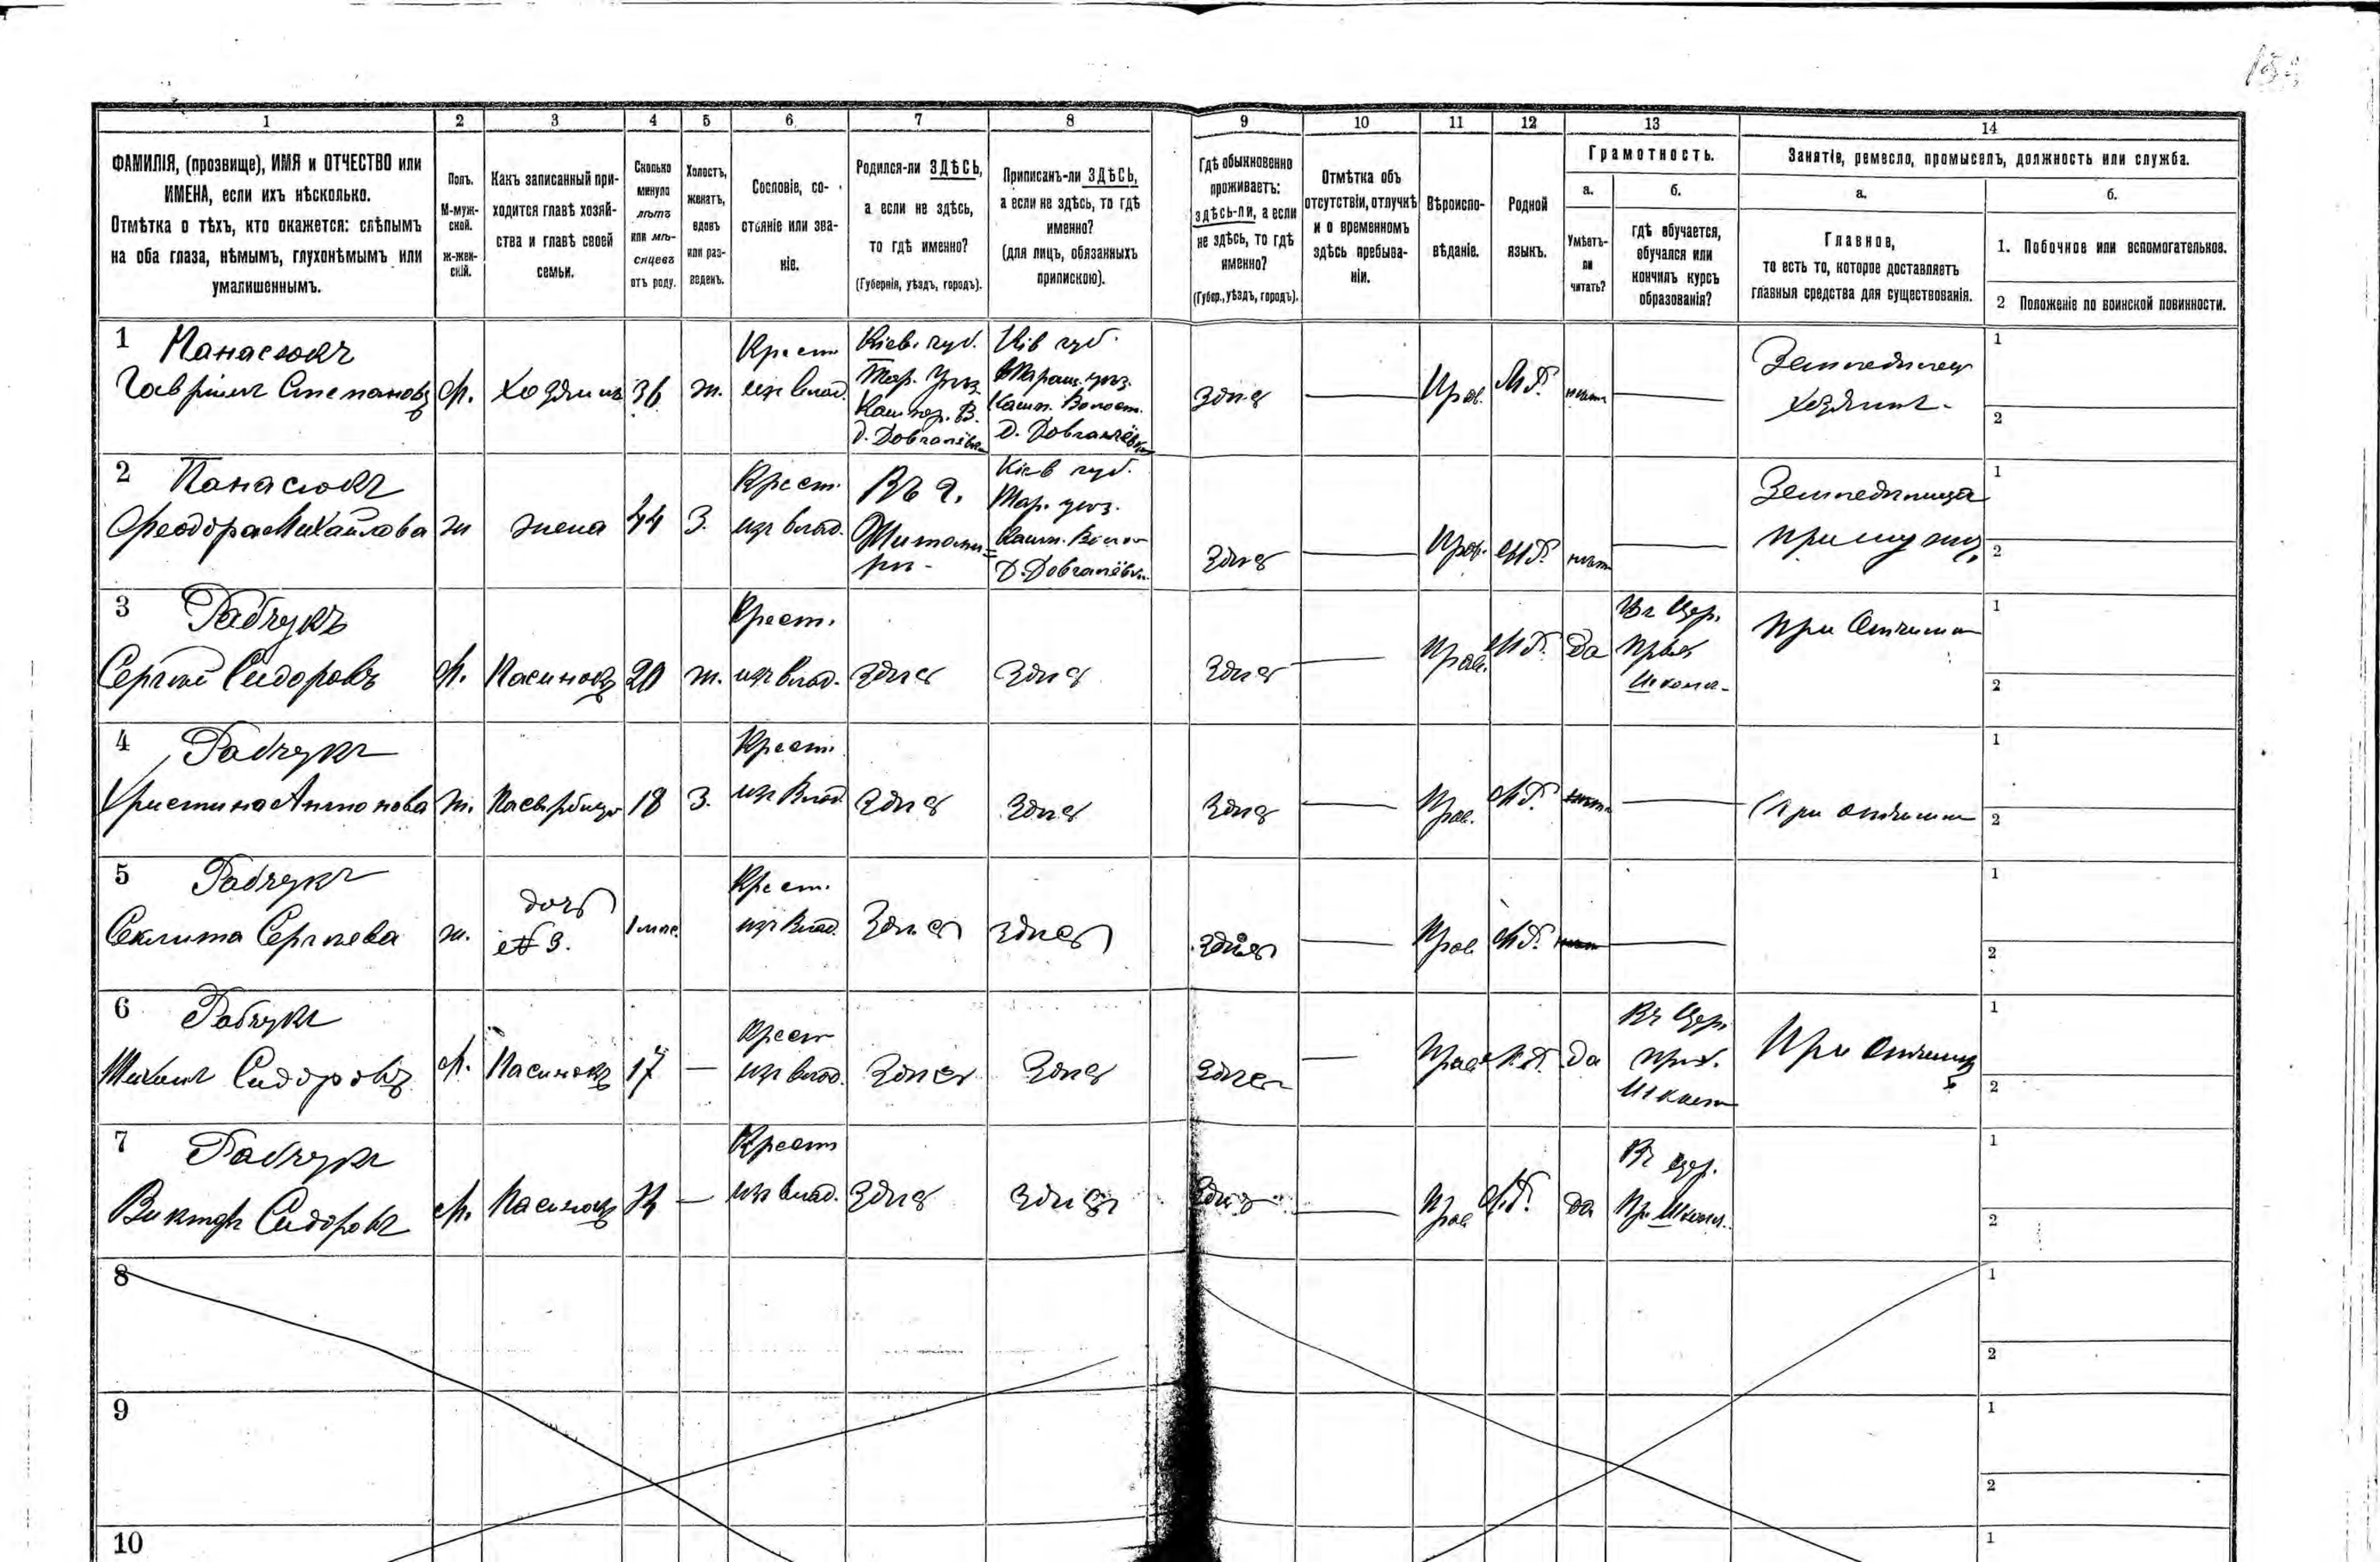 1
2
3
4
5
6
7
8
9
10
11
12
13
14
ФАМИЛІЯ, (прозвище), ИМЯ и ОТЧЕСТВО или
ИМЕНА, если ихъ нѣсколько.
Отмѣтка о тѣхъ, кто окажется: слѣпымъ
на оба глаза, нѣмымъ, глухонѣмымъ или
умалишеннымъ.
Полъ.
М-муж-
ской.
Ж-жен-
скій.
Какъ записанный при-
ходится главѣ хозяй-
ства и главѣ своей
семьи.
Сколько
минуло
лѣтъ
или мѣ-
сяцевъ
отъ роду.
Холостъ,
женатъ,
вдовъ
или раз-
веденъ.
Сословіе, со-
стояніе или зва-
ніе.
Родился-ли ЗДѢСЬ,
а если не здѣсь,
то гдѣ именно?
(Губернія, уѣздъ, городъ).
Приписанъ-ли ЗДѢСЬ,
а если не здѣсь, то гдѣ
именно?
(для лицъ, обязанныхъ
припискою).
Гдѣ обыкновенно
проживаетъ:
здѣсь-ли, а если
не здѣсь, то гдѣ
именно?
(Губер., уѣздъ, городъ).
Отмѣтка объ
отсутствіи, отлучкѣ
и о временномъ
здѣсь пребыва-
ніи.
Вѣроиспо-
вѣданіе.
Родной
языкъ.
Грамотность.
а.
Умѣетъ-
ли
читать?
б.
гдѣ обучается,
обучался или
кончилъ курсъ
образованія?
Занятіе, ремесло, промыселъ, должность или служба.
а.
Главное,
то есть то, которое доставляетъ
главныя средства для существованія.
б.
1. Побочное или вспомогательное.
2 Положеніе по воинской повинности.
1 Панасюкъ
Гавріилъ Степановъ
М.
Хозяинъ
36
ж.
Крест.
изъ влад.
Кіев. губ.
Тар. Уѣз.
Кашпер. В.
д. Довгалёвка
Кіев губ.
Таращ. уѣз.
Кашп. Волост.
Д. Довгалёвка
здѣсь
Прав.
М.Р.
нѣтъ
Земледѣлец
хозяинъ.
1
2
2 Панасюкъ
Феодора Михайлова
ж
жена
44
З.
Крест.
изъ влад.
Въ г.
Житоми=
рѣ.
Кіев губ.
Тар. уѣз.
Кашп. Волос
Д. Довгалёвк.
здѣсь
Прав.
М.Р.
нѣтъ
Земледѣлица
при мужѣ
1
2
3 Рабчукъ
Сергѣй Сидоровъ
М.
Пасинокъ
20
ж.
Крест.
изъ влад.
здѣсь
здѣсь
здѣсь
Прав.
М.Р.
да
Въ Цер.
прих
Школѣ.
при Отчимѣ
1
2
4 Рабчукъ
Христина Антонова
ж.
18
З.
Крест.
изъ Влад.
здѣсь
здѣсь
здѣсь
Прав.
М.Р.
нѣтъ
При отчимѣ
1
2
5 Рабчукъ
Секлита Сергѣева
ж.
дочь
№ 3.
1 мѣс.
Крест.
изъ Влад.
здѣсь
здѣсь
здѣсь
Прав.
М.Р.
1
2
6 Рабчукъ
Михаилъ Сидоровъ
М.
Пасинокъ
17
Крест
изъ влад.
здѣсь
здѣсь
здѣсь
Прав.
М.Р.
да
Въ Цер.
прих.
Школѣ
При отчимѣ
1
2
7 Рабчукъ
Викторъ Сидоровъ
М.
Пасинокъ
Крест
изъ влад.
здѣсь
здѣсь
здѣсь
Прав
М.Р.
да
Въ цер.
Пр. Школ.
1
2
8
1
2
9
1
2
10
1